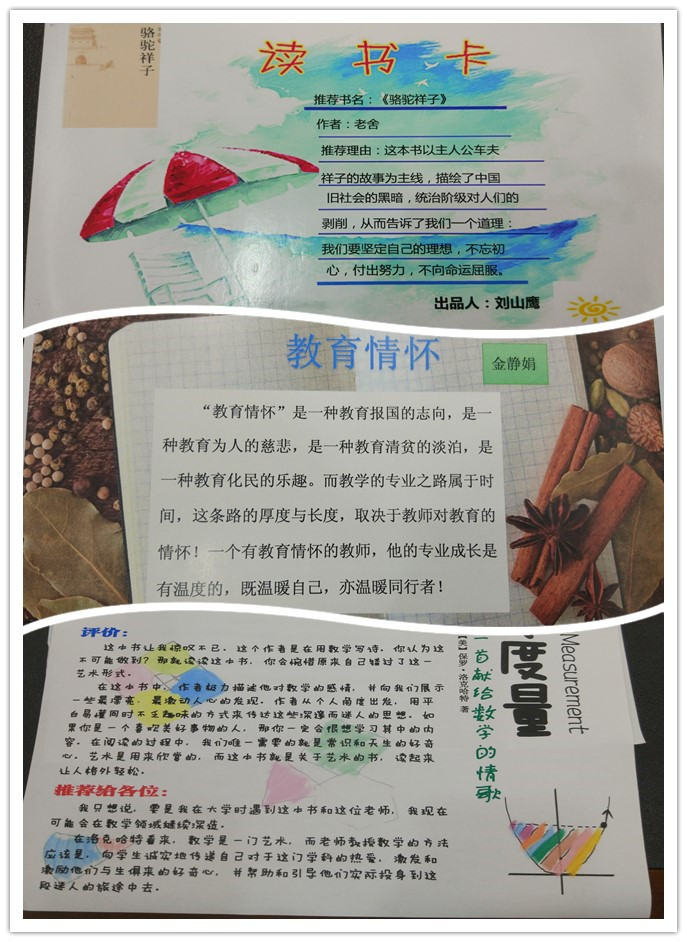 骆驼祥子
读书卡
推荐书名：《骆驼祥子》
作者：老舍
推荐理由：这本书以主人公车夫
祥子的故事为主线，描绘了中国
旧社会的黑暗，统治阶级对人们的
剥削，从而告诉了我们一个道理：
我们要坚定自己的理想，不忘初
心，付出努力，不向命运屈服。
出品人：刘山鹰
教育情怀
金静娟
“教育情怀”是一种教育报国的志向，是一
种教育为人的慈悲，是一种教育清贫的淡泊，是
一种教育化民的乐趣。而教学的专业之路属于时
间，这条路的厚度与长度，取决于教师对教育的
情怀！一个有教育情怀的教师，他的专业成长是
有温度的，既温暖自己，亦温暖同行者！
评价：
这本书让我惊叹不已。这个作者是在用数学写诗。你认为这
不可能做到？那就读读这本书，你会惋惜原来自己错过了这一
艺术形式。
在这本书中，作者极力描述他对数学的感情，并向我们展示
一些最漂亮、最激动人心的发现。作者从个人角度出发，用平
白易懂同时不乏趣味的方式来传达这些深邃而迷人的思想。如
果你是一个喜欢美好事物的人，那你一定会很想学习其中的内
容。在阅读的过程中，我们唯一需要的就是常识和天生的好奇
心。艺术是用来欣赏的，而这本书就是关于艺术的书，读起来
让人格外轻松。
推荐给各位：
我只想说，要是我在大学时遇到这本书和这位老师，我现在
可能会在数学领域继续深造。
在洛克哈特看来，数学是一门艺术，而老师教授数学的方法
应该是，向学生诚实地传递自己对于这门学科的热爱，激发和
激励他们与生俱来的好奇心，并帮助和引导他们实际投身到这
段迷人的旅途中去。
度量
Measurement
一首献给数学的情歌
【美】保罗·洛克哈特 著